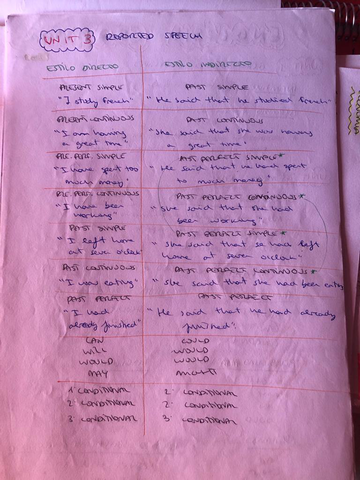 UNIT 3 REPORTED SPEECH
ESTILO DIRECTO ESTILO INDIRECTO
PRESENT SIMPLE PAST SIMPLE
"I study french" "He said that he studied french"
PRESENT CONTINUOUS PAST CONTINUOUS
"I am having "She said that she was having
a great time" a great time"
PRE. PERF. SIMPLE PAST PERFECT SIMPLE*
"I have spent too "He said that he had spent
much money" to much money"
PRE. PERF. CONTINUOUS PAST PERFECT CONTINUOUS*
"I have been "She said that she had
working" been working"
PAST SIMPLE PAST PERFECT SIMPLE*
"I left home "She said that se had left
at seven o'clock" home at seven o'clock"
PAST CONTINUOUS PAST PERFECT CONTINUOUS*
"I was eating" "She said that she had been eating
PAST PERFECT PAST PERFECT
"I had "He said that he had already
already finished" finished"
CAN COULD
WILL WOULD
WOULD WOULD
MAY MIGHT
1 CONDITIONAL 2 CONDITIONAL
2 CONDITIONAL 2 CONDITIONAL
3 CONDITIONAL 3 CONDITIONAL